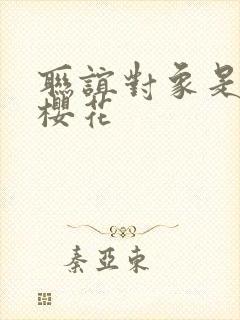 聯誼對象是
櫻花
秦亞東